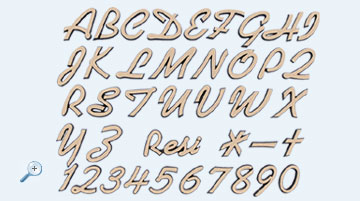 ABCDEFGHI
JKLMNOPQ
RSTUVWX
YZ Resi *-+
1234567890